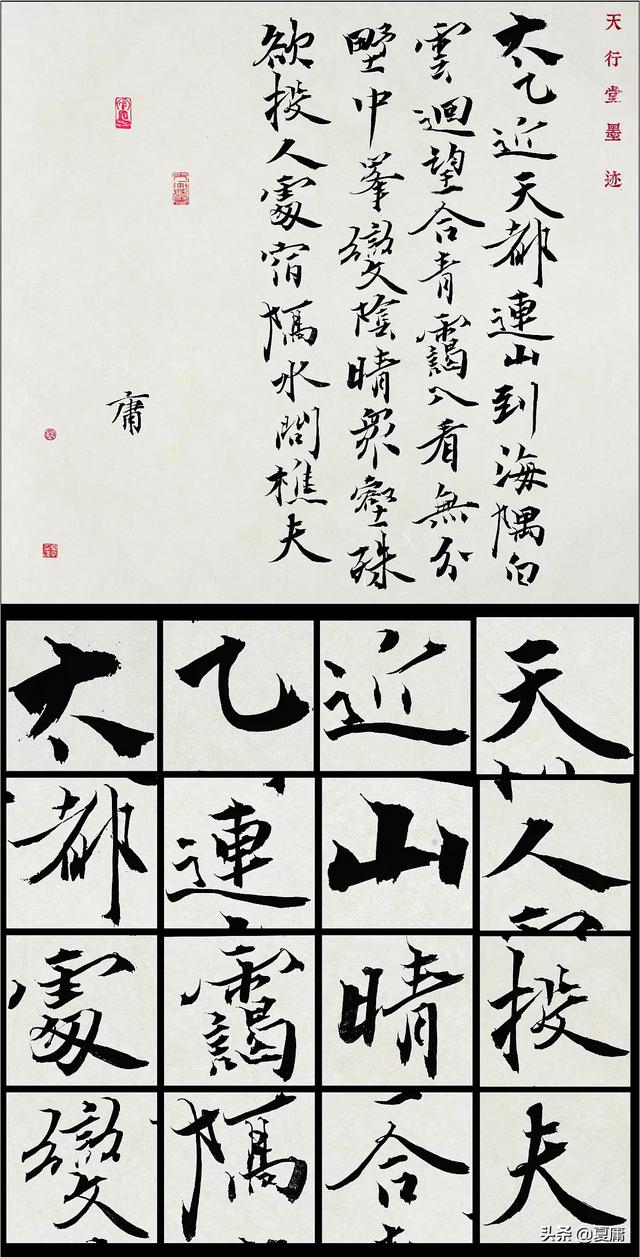 天行堂墨迹
太乙近天都連山到海隅白
雲迴望合青靄入看無分
野中峯變陰晴衆壑殊
欲投人處宿隔水問樵夫
庸
太乙近天
都連山人
處靄晴投
變隔合夫
头条 @夏庸